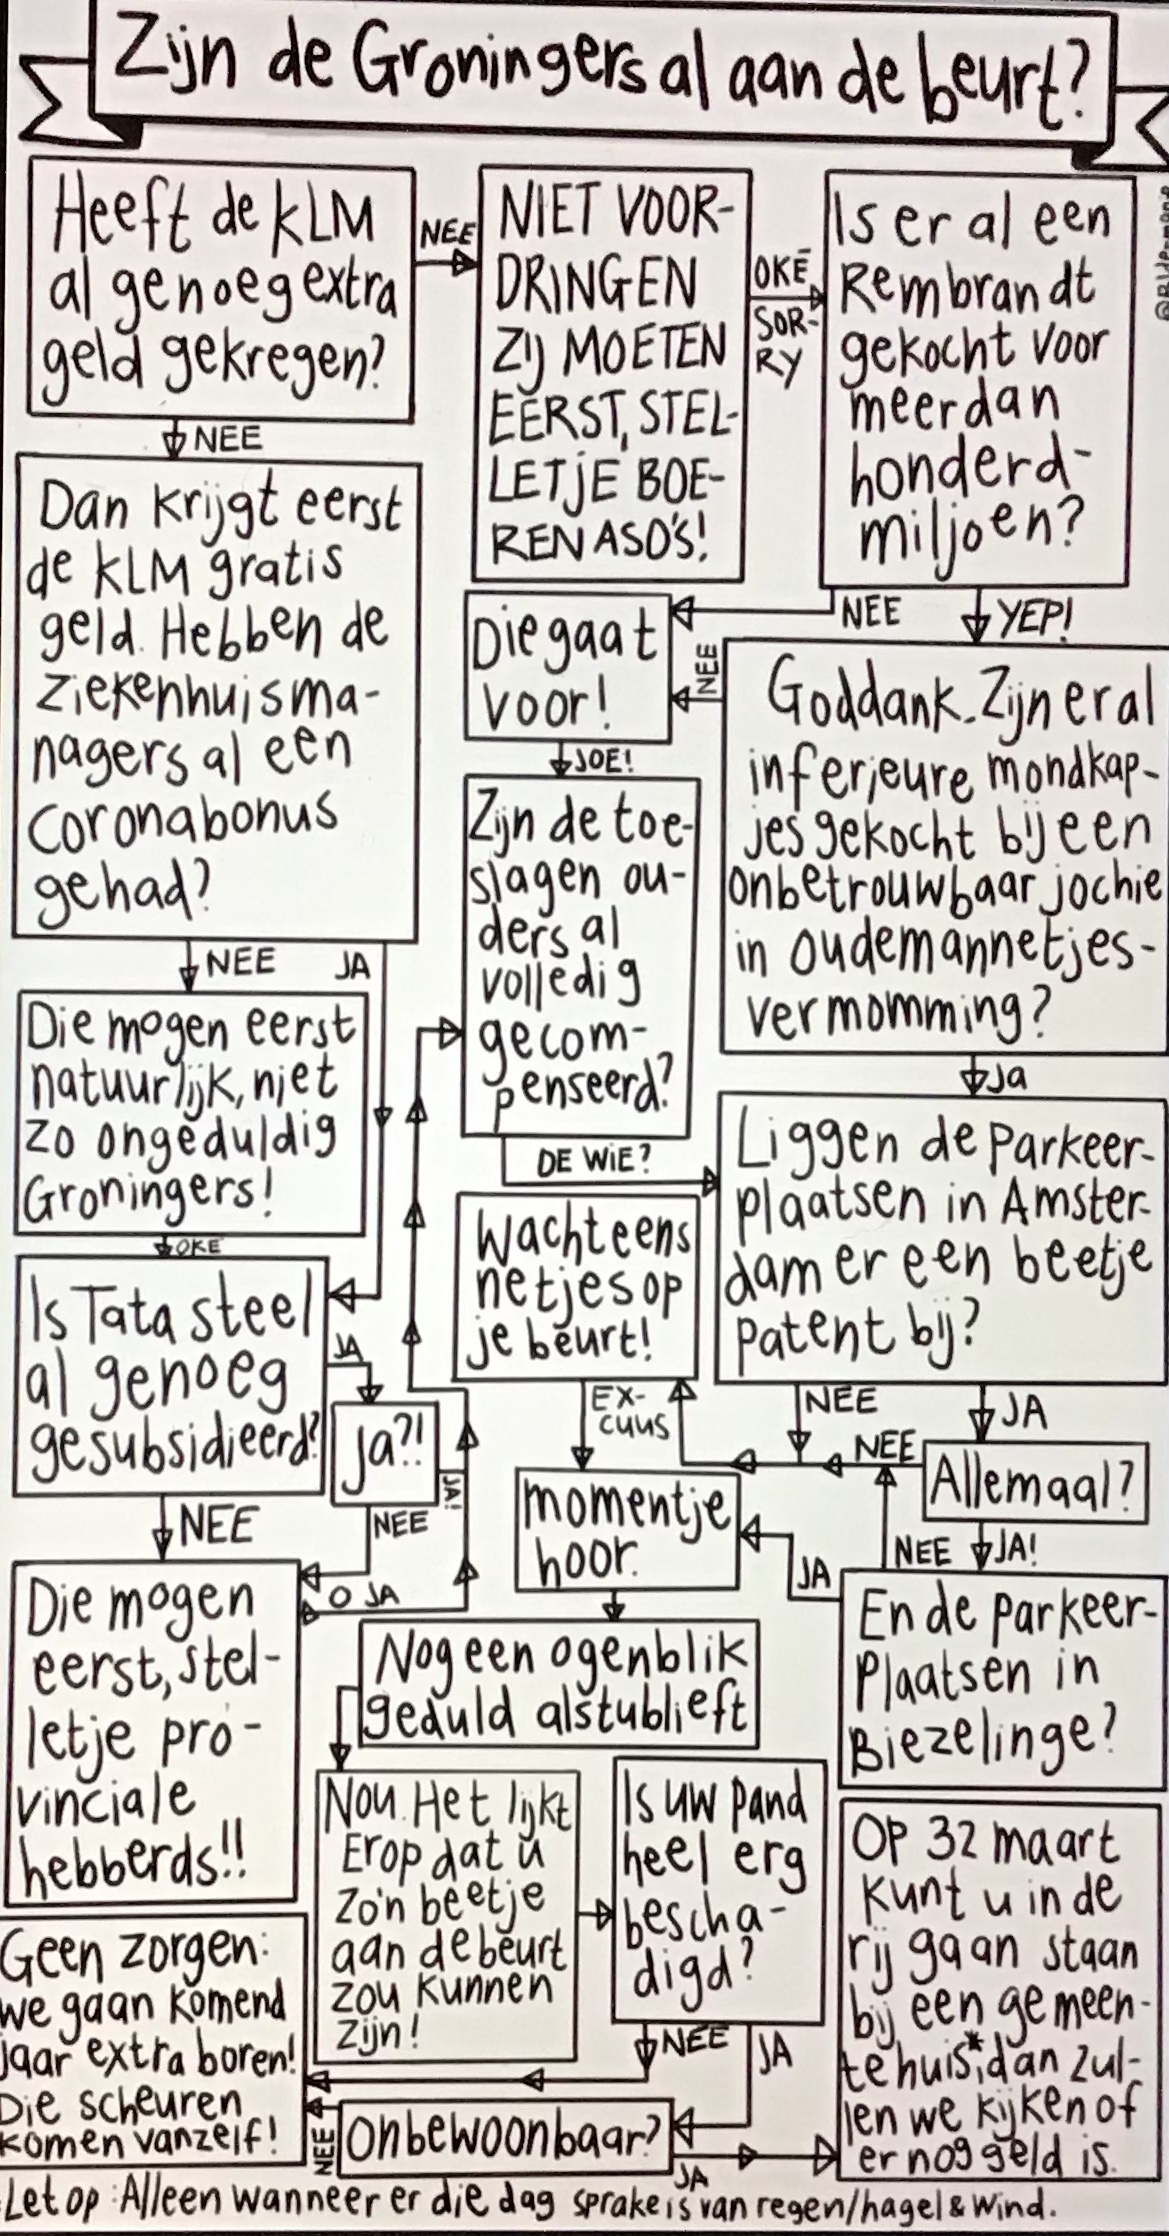 Zijn de Groningers al aan de beurt?
Heeft de KLM
al genoeg extra
geld gekregen?
NEE
NIET VOOR-
DRINGEN
ZIJ MOETEN
EERST, STEL-
LETJE BOE-
REN ASO'S!
OKÉ
SOR-
RY
Is er al een
Rembrandt
gekocht voor
meer dan
honderd-
miljoen?
NEE
Dan krijgt eerst
de KLM gratis
geld. Hebben de
ziekenhuisma-
nagers al een
coronabonus
gehad?
NEE
YEP!
Die gaat
voor!
NEE
JOE!
Goddank. Zijn er al
inferieure mondkap-
jes gekocht bij een
onbetrouwbaar jochie
in oudemannetjes-
vermomming?
Zijn de toe-
slagen ou-
ders al
volledig
gecom-
penseerd?
NEE
JA
Die mogen eerst
natuurlijk, niet
zo ongeduldig
Groningers!
OKE
Ja
DE WIE?
Liggen de parkeer-
plaatsen in Amster-
dam er een beetje
patent bij?
Wacht eens
netjes op
je beurt!
Is Tata steel
al genoeg
gesubsidieerd?
JA
ja?!
JA!
NEE
NEE
EX-
cuus
NEE
JA
NEE
Allemaal?
momentje
hoor.
JA
NEE
JA!
En de parkeer-
plaatsen in
Biezelinge?
Die mogen
eerst, stel-
letje pro-
vinciale
hebberds!!
O JA
Nog een ogenblik
geduld alstublieft
Nou. Het lijkt
Erop dat u
zo'n beetje
aan de beurt
zou kunnen
zijn!
Is uw pand
heel erg
bescha-
digd?
NEE
JA
Op 32 maart
kunt u in de
rij gaan staan
bij een gemeen-
tehuis*, dan zul-
len we kijken of
er nog geld is.
Geen zorgen:
we gaan komend
jaar extra boren!
Die scheuren
komen vanzelf!
NEE
Onbewoonbaar?
JA
Let op: Alleen wanneer er die dag sprake is van regen/hagel & wind.